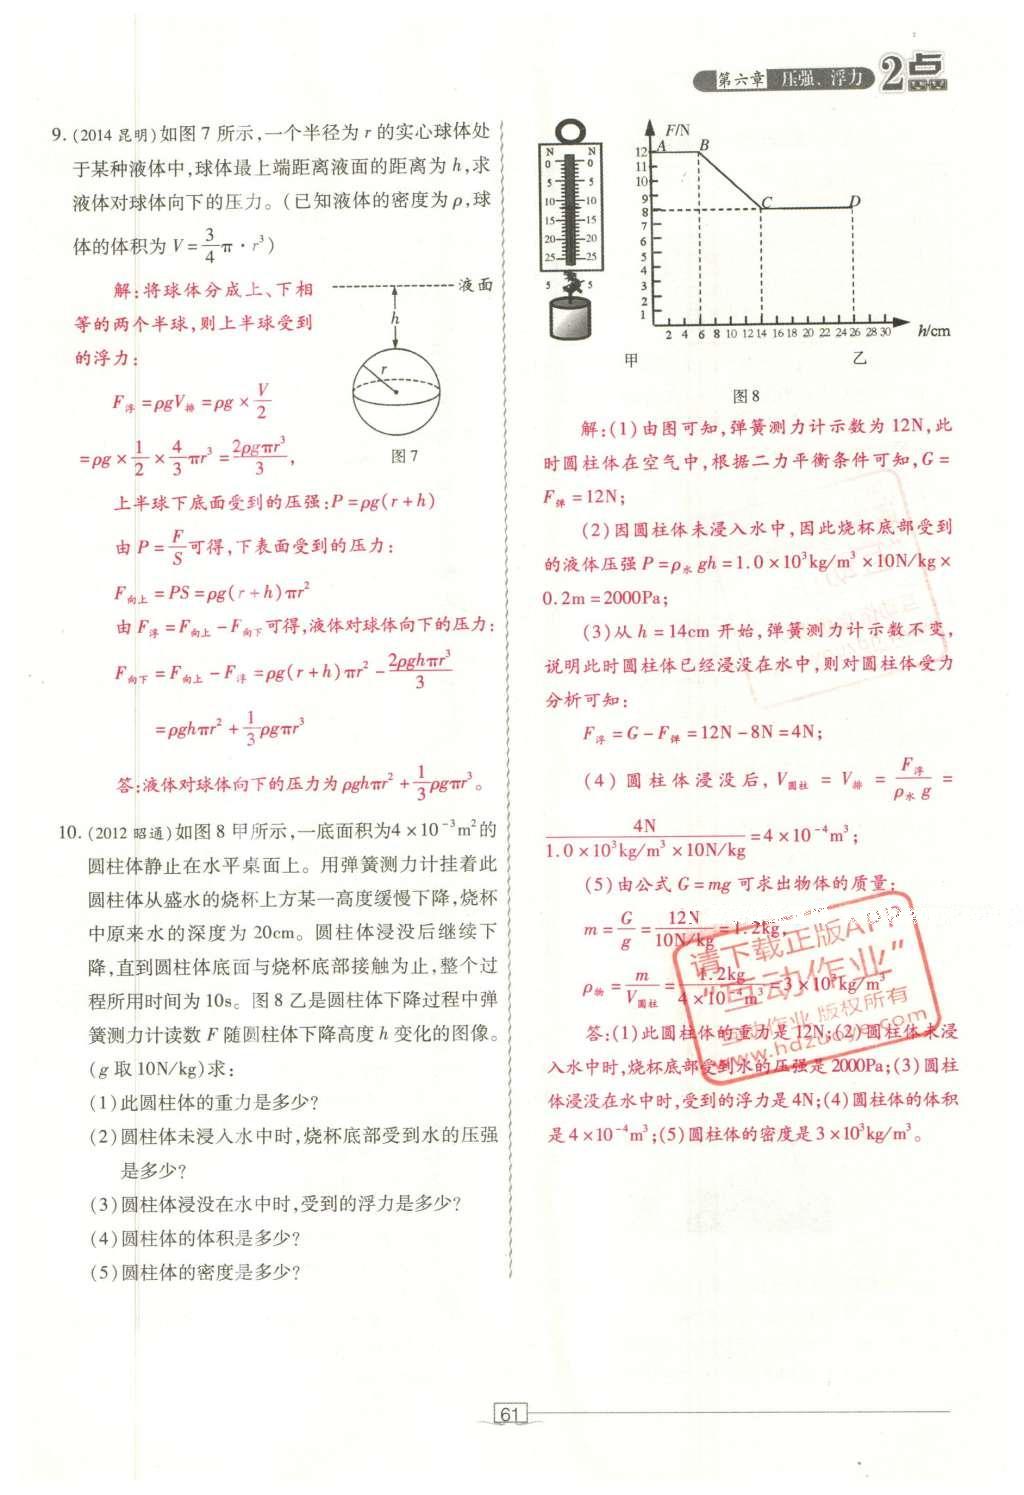 第六章 压强、浮力 2点
9.(2014 昆明)如图 7 所示,一个半径为 r 的实心球体处
于某种液体中,球体最上端距离液面的距离为 h,求
液体对球体向下的压力。(已知液体的密度为 ρ,球
体的体积为 V=3/4π·r³)
解:将球体分成上、下相
等的两个半球,则上半球受到
的浮力:
F浮=ρgV排=ρg×V/2
=ρg×1/2×4/3πr³=2ρgπr³/3,
液面
h
r
图 7
上半球下底面受到的压强:P=ρg(r+h)
由 P=F/S可得,下表面受到的压力:
F向上=PS=ρg(r+h)πr²
由 F浮=F向上-F向下可得,液体对球体向下的压力:
F向下=F向上-F浮=ρg(r+h)πr²-2ρghπr³/3
=ρghπr²+1/3ρgπr³
答:液体对球体向下的压力为 ρghπr²+1/3ρgπr³。
10.(2012 昭通)如图 8 甲所示,一底面积为4×10⁻³m²的
圆柱体静止在水平桌面上。用弹簧测力计挂着此
圆柱体从盛水的烧杯上方某一高度缓慢下降,烧杯
中原来水的深度为 20cm。圆柱体浸没后继续下
降,直到圆柱体底面与烧杯底部接触为止,整个过
程所用时间为 10s。图 8 乙是圆柱体下降过程中弹
簧测力计读数 F 随圆柱体下降高度 h 变化的图像。
(g 取 10N/kg)求:
(1)此圆柱体的重力是多少?
(2)圆柱体未浸入水中时,烧杯底部受到水的压强
是多少?
(3)圆柱体浸没在水中时,受到的浮力是多少?
(4)圆柱体的体积是多少?
(5)圆柱体的密度是多少?
N N
0 0
5 5
10 10
15 15
20 20
25 25
5 5
甲
F/N
A B C D
12
11
10
9
8
7
6
5
4
3
2
1
2 4 6 8 10 12 14 16 18 20 22 24 26 28 30 h/cm
乙
图 8
解:(1)由图可知,弹簧测力计示数为 12N,此
时圆柱体在空气中,根据二力平衡条件可知,G=
F弹=12N;
(2)因圆柱体未浸入水中,因此烧杯底部受到
的液体压强 P=ρ水gh=1.0×10³kg/m³×10N/kg×
0.2m=2000Pa;
(3)从 h=14cm 开始,弹簧测力计示数不变,
说明此时圆柱体已经浸没在水中,则对圆柱体受力
分析可知:
F浮=G-F弹=12N-8N=4N;
(4)圆柱体浸没后,V圆柱=V排=F浮/ρ水g=
4N/1.0×10³kg/m³×10N/kg=4×10⁻⁴m³;
(5)由公式 G=mg 可求出物体的质量:
m=G/g=12N/10N/kg=1.2kg,
ρ物=m/V圆柱=1.2kg/4×10⁻⁴m³=3×10³kg/m³
答:(1)此圆柱体的重力是 12N;(2)圆柱体未浸
入水中时,烧杯底部受到水的压强是 2000Pa;(3)圆柱
体浸没在水中时,受到的浮力是 4N;(4)圆柱体的体积
是 4×10⁻⁴m³;(5)圆柱体的密度是 3×10³kg/m³。
请下载正版APP
"互动作业"
互动作业 版权所有
www.hdzuoye.com
61